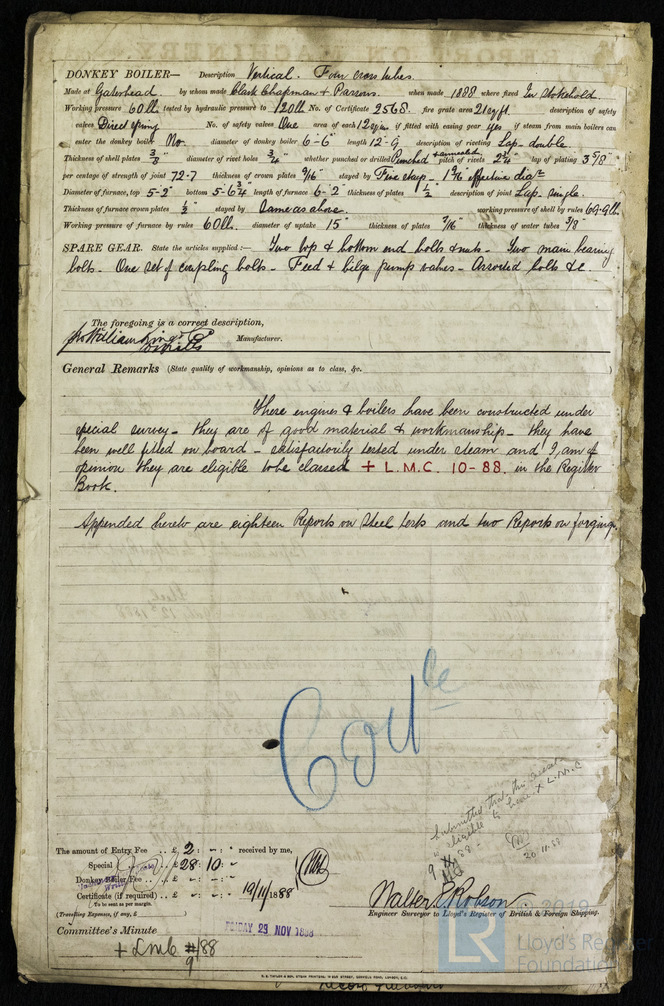 DONKEY BOILER— Description Vertical. Four cross tubes.
Made at Gateshead by whom made Clark Chapman & Parsons. when made 1888 where fixed In Stokehold
Working pressure 60 lb. tested by hydraulic pressure to 120 lb No. of Certificate 2568. fire grate area 21 sq ft. description of safety
valves Direct spring No. of safety valves One area of each 12 sq in if fitted with easing gear yes if steam from main boilers can
enter the donkey boiler No. diameter of donkey boiler 6-6 length 12-9 description of riveting Lap-double
Thickness of shell plates 3/8" diameter of rivet holes 3/4" whether punched or drilled Punched & annealed pitch of rivets 2 3/4" lap of plating 3 5/8"
per centage of strength of joint 72-7 thickness of crown plates 9/16" stayed by Five stays - 1 9/16 effective diar
Diameter of furnace, top 5-2" bottom 5-6 3/4 length of furnace 6-2" thickness of plates 1/2" description of joint Lap. single.
Thickness of furnace crown plates 1/2" stayed by Same as above. working pressure of shell by rules 69-9 ll.
Working pressure of furnace by rules 60 ll. diameter of uptake 15" thickness of plates 7/16" thickness of water tubes 3/8"
SPARE GEAR. State the articles supplied:— Two top & bottom end bolts & nuts - Two main bearing
bolts. One set of coupling bolts - Feed & bilge pump valves - Assorted bolts &c.
The foregoing is a correct description,
Manufacturer.
General Remarks (State quality of workmanship, opinions as to class, &c.
These engines & boilers have been constructed under
special survey - they are of good material & workmanship - they have
been well fitted on board - satisfactorily tested under steam and I am of
opinion they are eligible to be classed + L.M.C. 10-88. in the Register
Book.
Appended hereto are eighteen Reports on Steel tests and two Reports on forgings.
Submitted that this vessel
is eligible to have + L.M.C
20.11.88
The amount of Entry Fee .. £ 2 : - : - received by me,
Special .. £ 28 : 10 : -
Donkey Boiler Fee .. £ - : - : -
Certificate (if required) .. £ - : - : - 19/11/1888
To be sent as per margin.
(Travelling Expenses, if any, £ )
Walter E Robson
Engineer Surveyor to Lloyd's Register of British & Foreign Shipping.
Committee's Minute
FRIDAY 23 NOV 1888
+ LMC
2019
LR
Lloyd's Register
Foundation